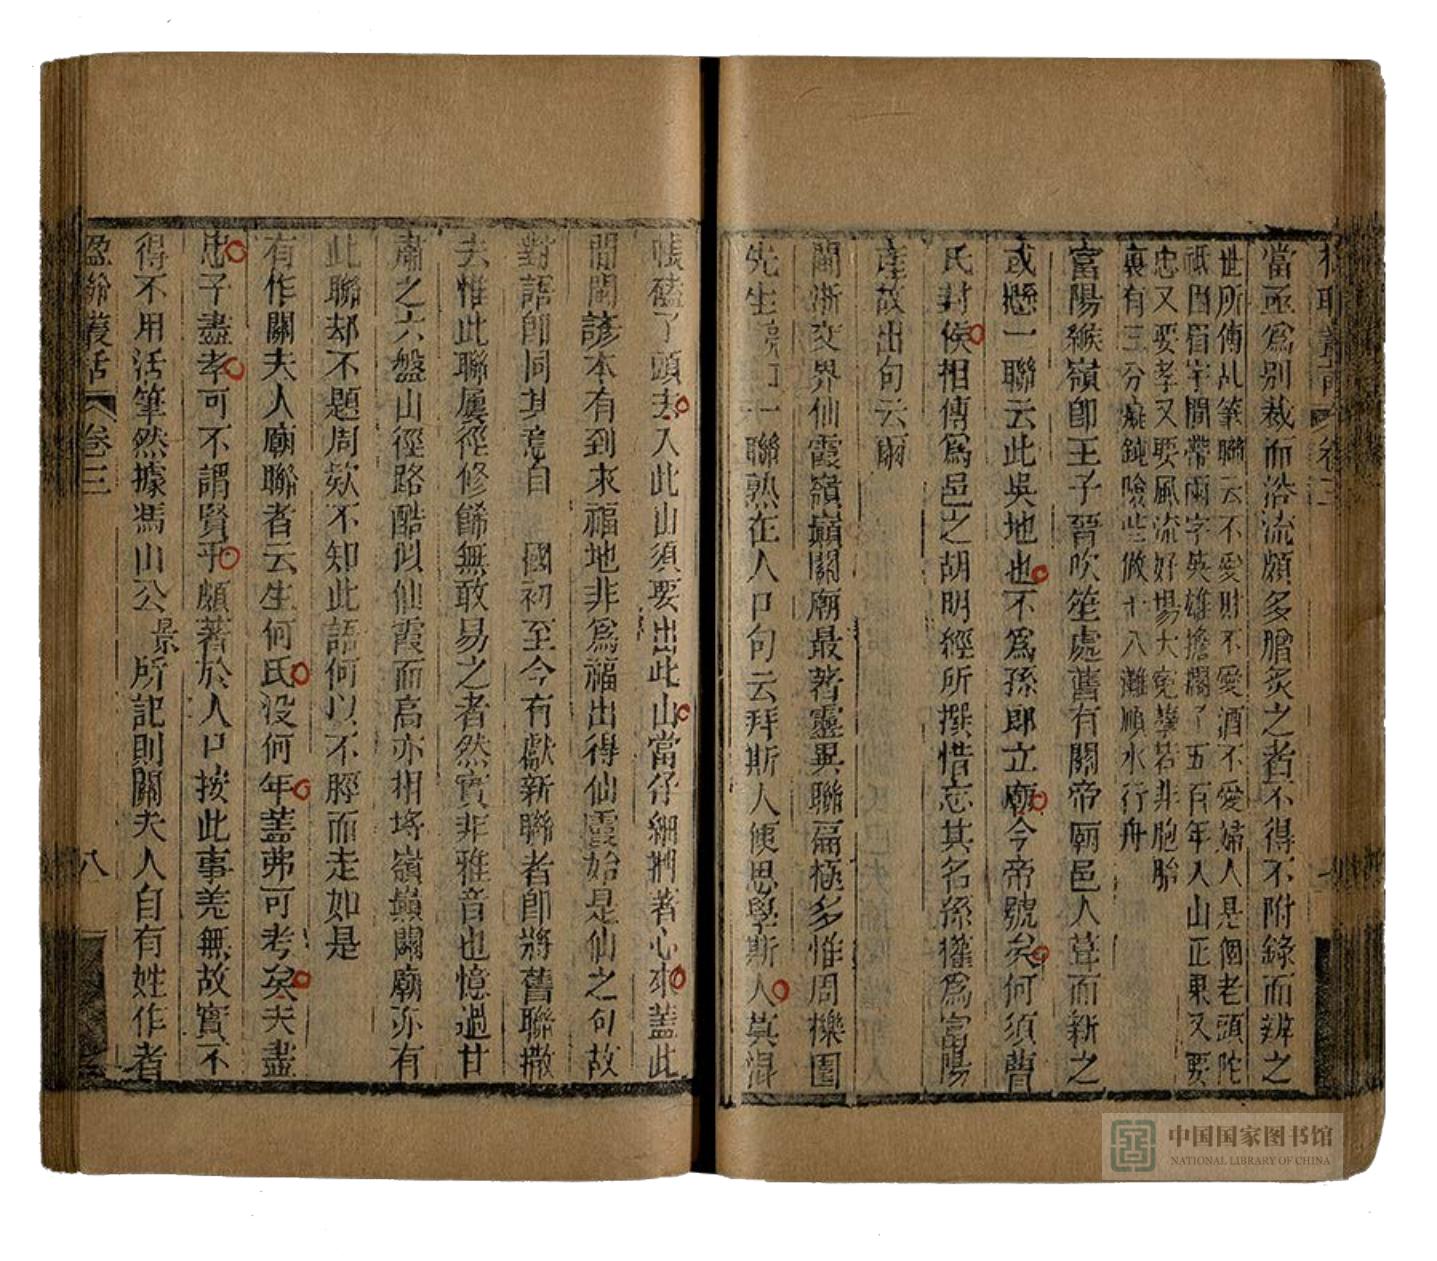 楹聯叢話 卷三
當亟爲别裁而沿流頗多膾炙之者不得不附錄而辨之
世所傳乩筆聯云不愛財不愛酒不愛婦人是個老頭陀
祇因眉宇間帶兩字英雄擔擱了五百年入山正果又要
忠又要孝又要風流好場大冤孽若非胞胎
裏有三分癡鈍險些做十八灘順水行舟
富陽緱嶺卽王子晉吹笙處舊有關帝廟邑人葺而新之
或懸一聯云此吳地也不爲孫郎立廟今帝號矣何須曹
氏封侯相傳爲邑之胡明經所撰惜忘其名孫權爲富陽
產故出句云爾
閩浙交界仙霞嶺巔關廟最著靈異聯匾極多惟周櫟園
先生 一聯熟在人口句云拜斯人便思學斯人莫混
帳磕了頭去入此山須要出此山當仔細捫著心來蓋此
間閩諺本有到來福地非爲福出得仙霞始是仙之句故
對語卽同其意自 國初至今有獻新聯者卽將舊聯撤
去惟此聯屢經修飾無敢易之者然實非雅音也憶過甘
肅之六盤山徑路酷似仙霞而高亦相埒嶺巔關廟亦有
此聯却不題周欵不知此語何以不脛而走如是
有作關夫人廟聯者云生何氏没何年蓋弗可考矣夫盡
忠子盡孝可不謂賢乎頗著於人口按此事羌無故實不
得不用活筆然據馮山公 景 所記則關夫人自有姓作者
楹聯叢話 卷三 八